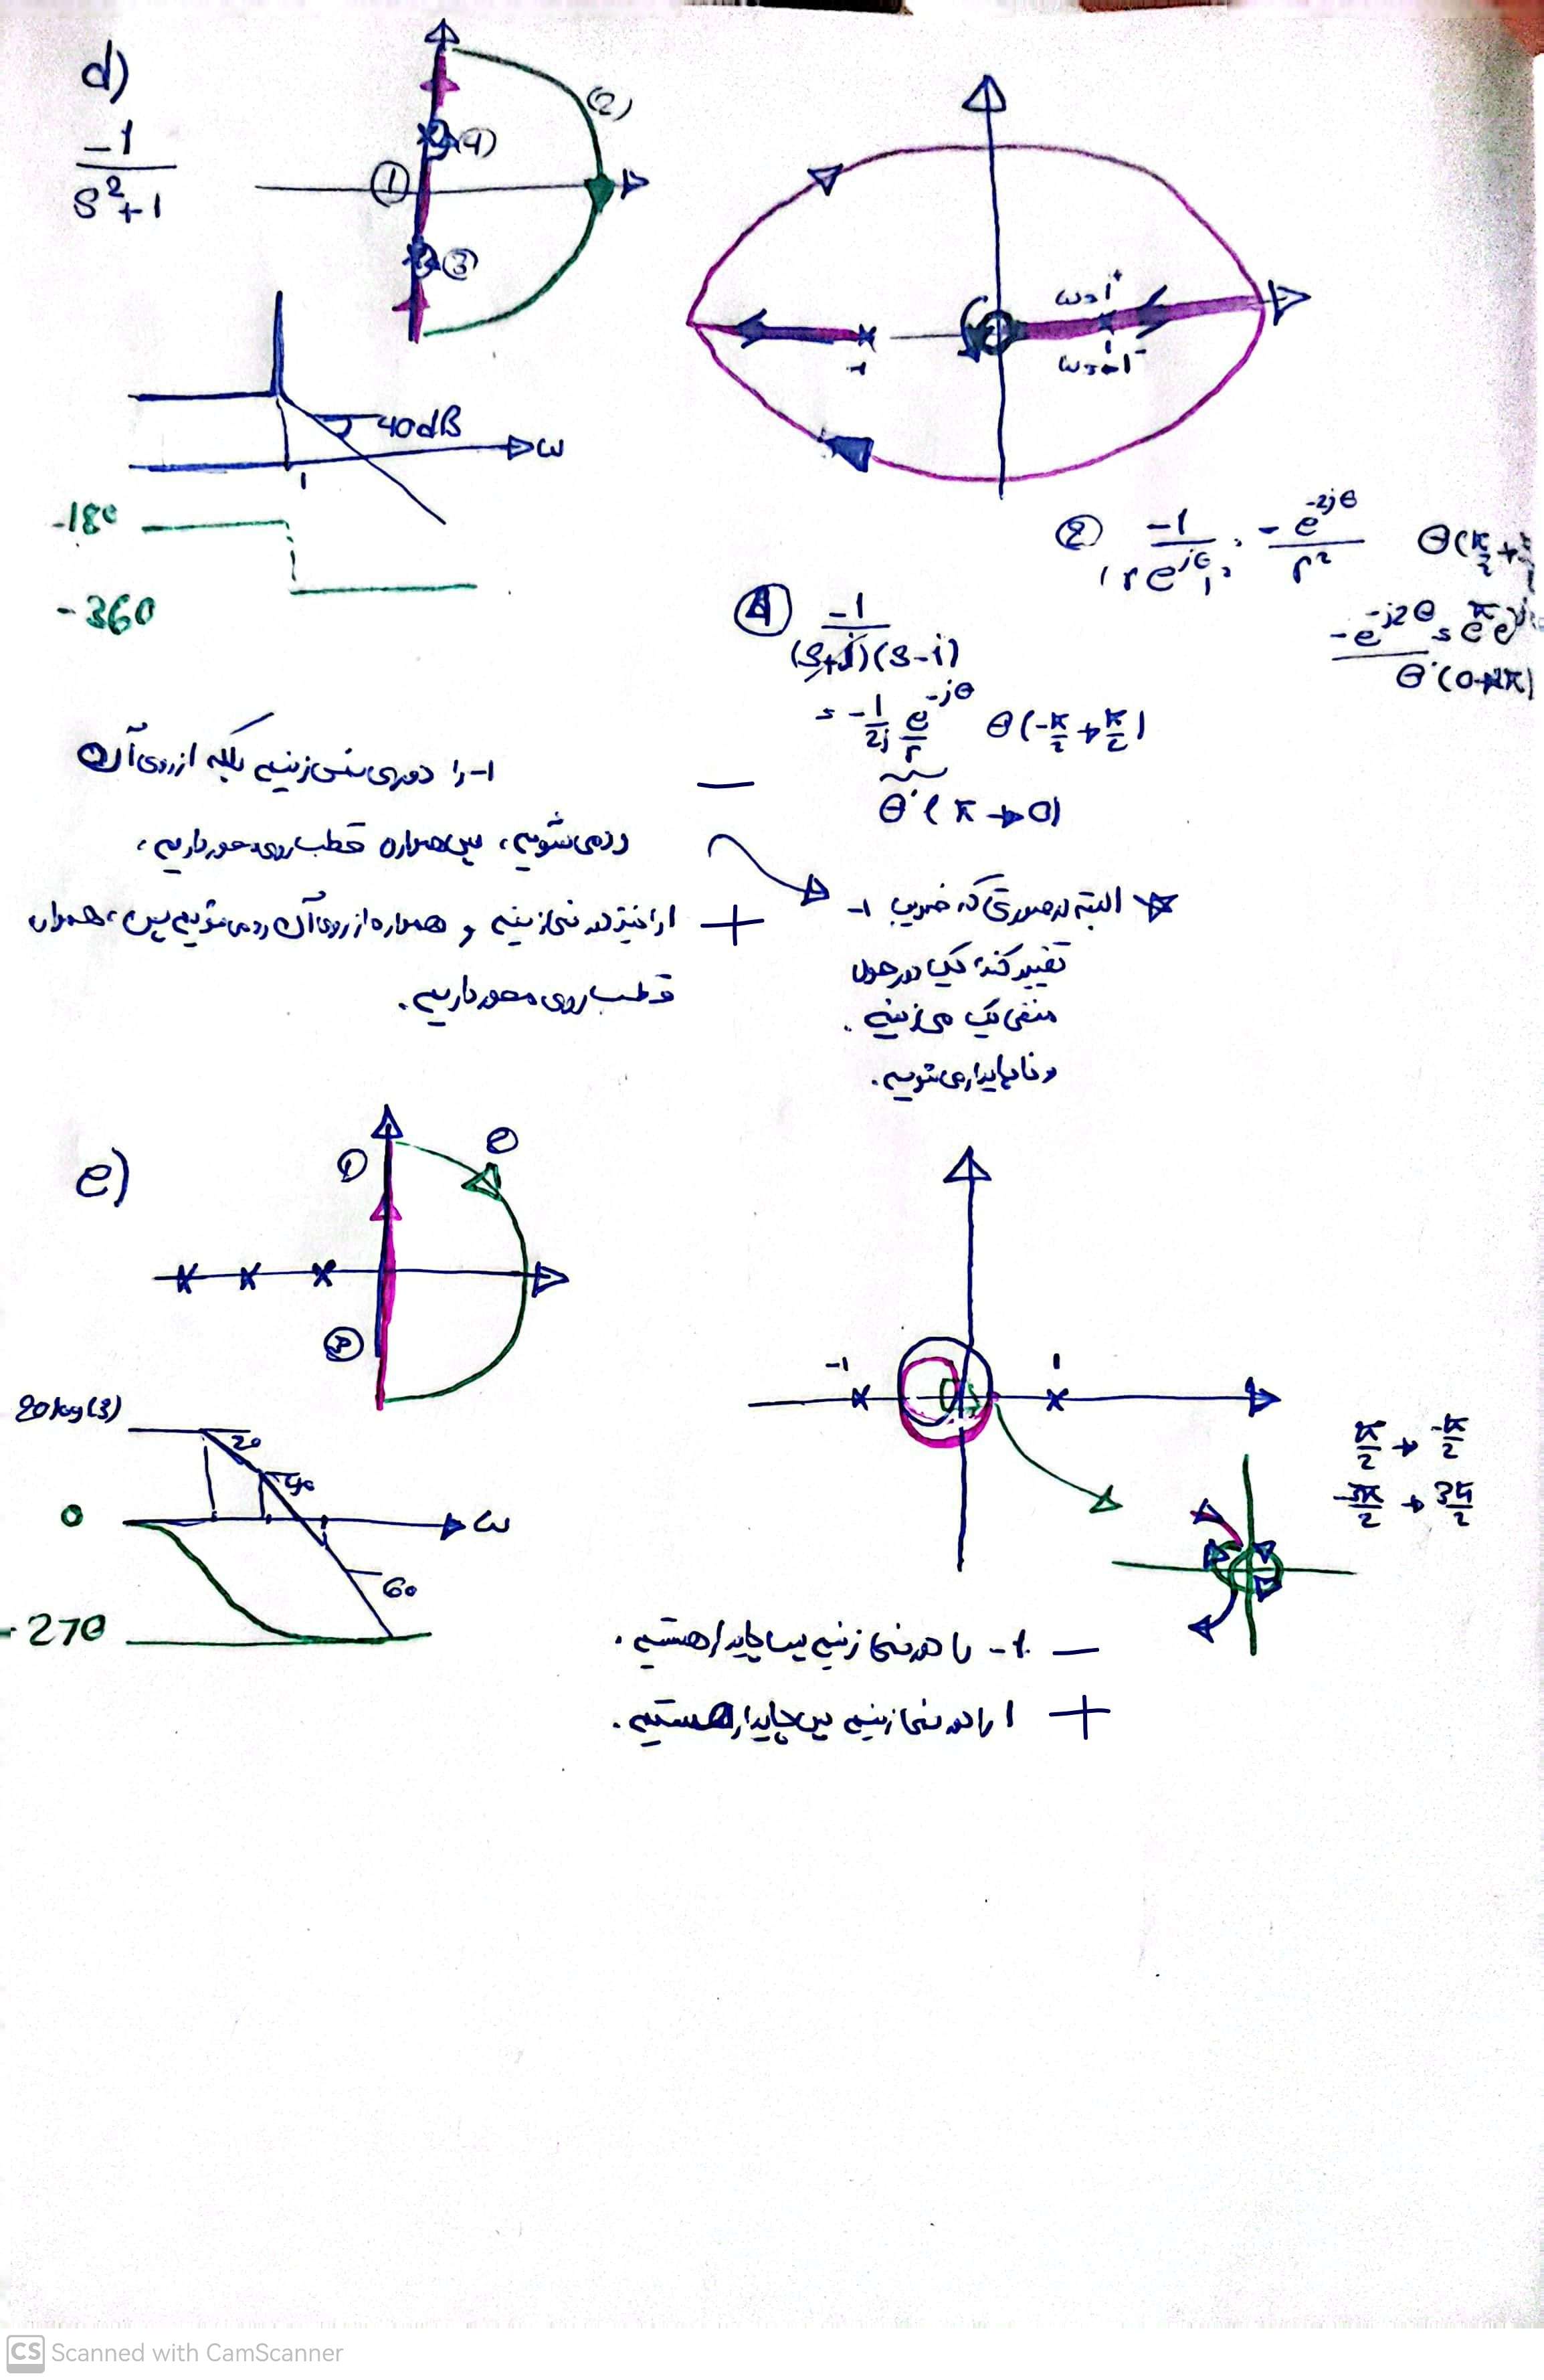 d)
-1
s²+1
(2)
(4)
①
(3)
ω=1⁺
ω=-1⁻
-1
40dB
ω
1
-180
-360
② -1 / (re^jθ)² = -e^-2jθ / r²
-e^-j2θ
④ -1 / (s+j)(s-j)
= -1/2j e^-jθ/r θ(-π/2 → π/2)
θ'(π → 0)
1- را دوری نمی‌زنیم بلکه از روی آن
رد می‌شویم، پس همواره قطب روی محور داریم،
1 را نیز دور نمی‌زنیم و همواره از روی آن رد می‌شویم پس، همواره
قطب روی محور داریم.
البته در صورتی که ضریب 1-
تغییر کند، یک دور حول
منفی یک می‌زنیم.
و ناپایدار می‌شویم.
e)
①
②
③
-1
1
20log(3)
20
40
0
ω
60
-270
π/2 → -π/2
-3π/2 → 3π/2
- 1- را دور نمی‌زنیم پس پایدار هستیم.
+ 1 را دور نمی‌زنیم پس پایدار هستیم.
CS Scanned with CamScanner